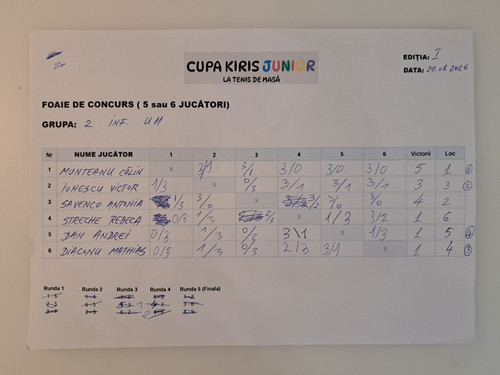 CUPA KIRIS JUNIOR
LA TENIS DE MASĂ
EDIȚIA: I
DATA: 29.08.2026
FOAIE DE CONCURS ( 5 sau 6 JUCĂTORI)
GRUPA: 2 INF. U11
Nr NUME JUCĂTOR 1 2 3 4 5 6 Victorii Loc
1 MUNTEANU CĂLIN x 3/1 3/1 3/0 3/0 3/0 5 1
2 IONESCU VICTOR 1/3 x 0/3 3/1 3/1 3/1 3 3
3 SAVENCO ANTONIA 1/3 3/0 x 3/2 3/0 3/0 4 2
4 STRECHE REBECA 0/3 1/3 2/3 x 1/3 3/2 1 6
5 DAN ANDREI 0/3 1/3 0/3 3\1 x 1/3 1 5
6 DIACONU MATHIAS 0/3 1/3 0/3 2/3 3/1 x 1 4
Runda 1 Runda 2 Runda 3 Runda 4 Runda 5 (Finala)